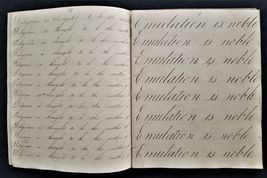 Religion is thought to be the
Religion is thought to be the mother
Religion is thought to be the mother
Religion is thought to be the mother
Religion is thought to be the mother
Religion is thought to be the mother
Religion is thought to be the mother
Religion is thought to be the mother
Religion is thought to be the mother
Religion is thought to be the mother
Religion is thought to be the mother
Religion is thought to be the mother
Emulation is noble
Emulation is noble
Emulation is noble
Emulation is noble
Emulation is noble
Emulation is noble
Emulation is noble
Emulation is noble